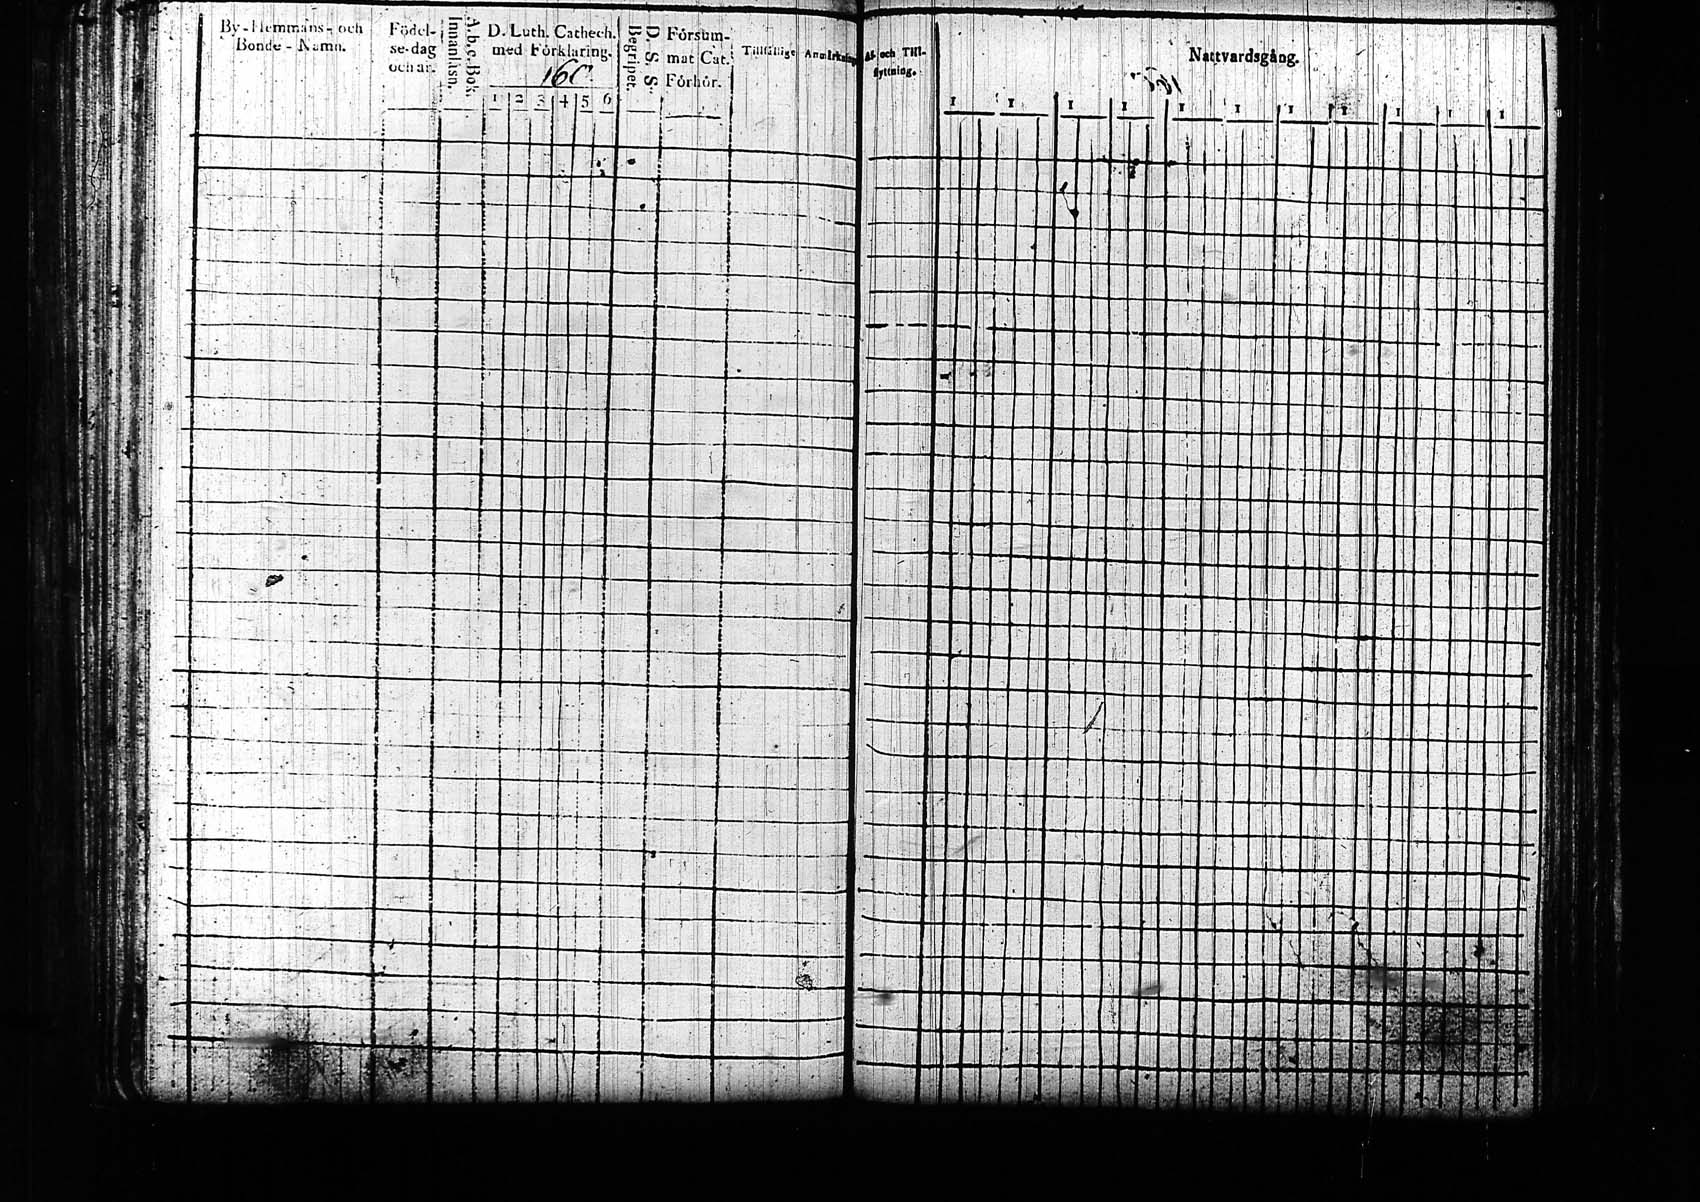 By-Hemmans- och
Bonde-Namn.
Födel-
se-dag
och år.
A.b.c.Bok.
Innanläsn.
D. Luth. Cathech.
med Förklaring.
1 2 3 4 5 6
D. S. S:
Begripet.
Försum-
mat Cat.
Förhör.
Tillfällige Anmärkning
Af- och Till-
flyttning.
Nattvardsgång.
1 1 1 1 1 1 1 1 1 1 1